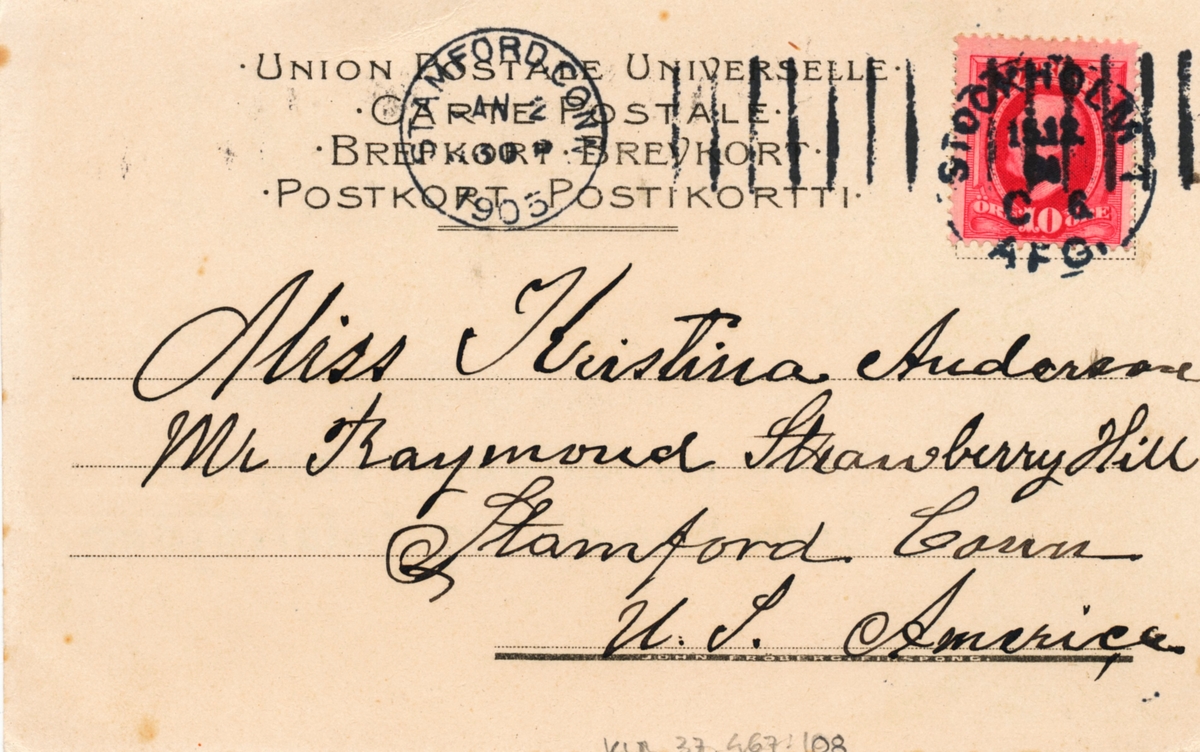 ·UNION POSTALE UNIVERSELLE·
·CARTE POSTALE·
·BREFKORT·BREVKORT·
·POSTKORT·POSTIKORTTI·
STAMFORD, CONN.
JAN 2
30 P
1905
STOCKHOLM 1
12
C 6
AFG.
ÖRE 10 ÖRE
Miss Kristina Anderson
Mr Raymond Strawberry Hill
Stamford Conn
U. S. America
JOHN FRÖBERG, FINSPONG.
37.467:108